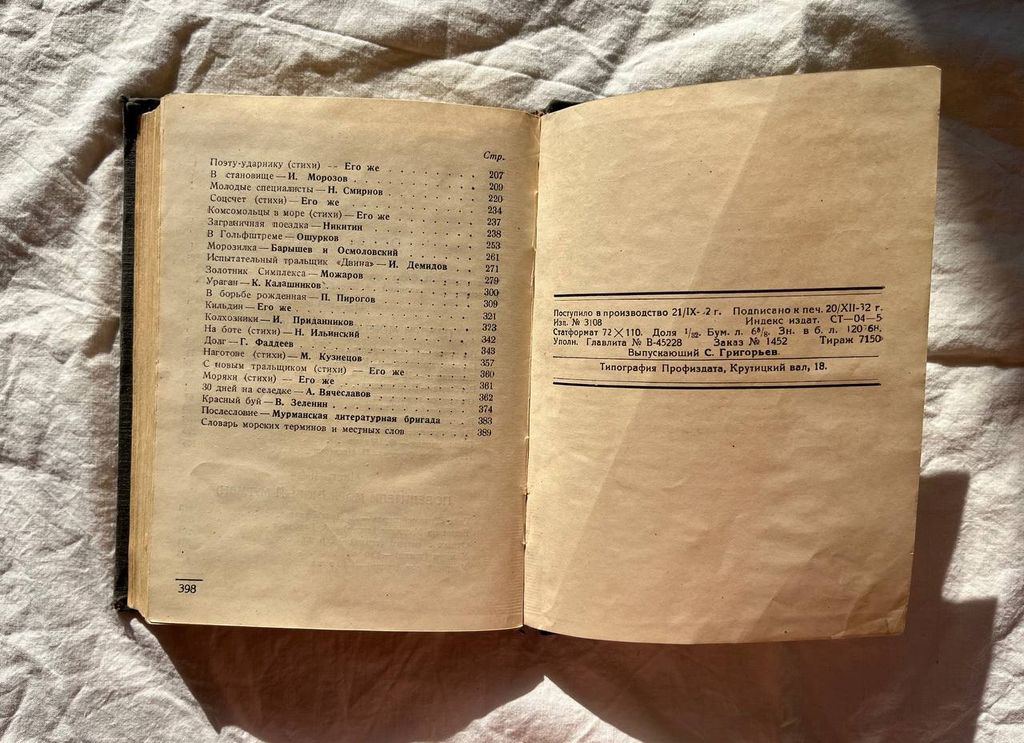 Стр.
Поэту-ударнику (стихи) — Его же . . . . 207
В становище — И. Морозов . . . . 209
Молодые специалисты — Н. Смирнов . . . . 220
Соцсчет (стихи) — Его же . . . . 234
Комсомольцы в море (стихи) — Его же . . . . 237
Заграничная поездка — Никитин . . . . 238
В Гольфштреме — Ошурков . . . . 253
Морозилка — Барышев и Осмоловский . . . . 261
Испытательный тральщик «Двина» — И. Демидов . . . . 271
Золотник Симплекса — Можаров . . . . 279
Ураган — К. Калашников . . . . 300
В борьбе рожденная — П. Пирогов . . . . 309
Кильдин — Его же . . . . 321
Колхозники — И. Приданников . . . . 323
На боте (стихи) — Н. Ильинский . . . . 342
Долг — Г. Фаддеев . . . . 343
Наготове (стихи) — М. Кузнецов . . . . 357
С новым тральщиком (стихи) — Его же . . . . 360
Моряки (стихи) — Его же . . . . 361
30 дней на селедке — А. Вячеславов . . . . 362
Красный буй — В. Зеленин . . . . 374
Послесловие — Мурманская литературная бригада . . . . 383
Словарь морских терминов и местных слов . . . . 389
398
Поступило в производство 21/IX- 2 г. Подписано к печ. 20/XII-32 г.
Изд. № 3108 Индекс издат. СТ—04—5
Статформат 72×110. Доля 1/32. Бум. л. 6⅛. Зн. в б. л. 120768.
Уполн. Главлита № В-45228 Заказ № 1452 Тираж 7150
Выпускающий С. Григорьев.
Типография Профиздата, Крутицкий вал, 18.